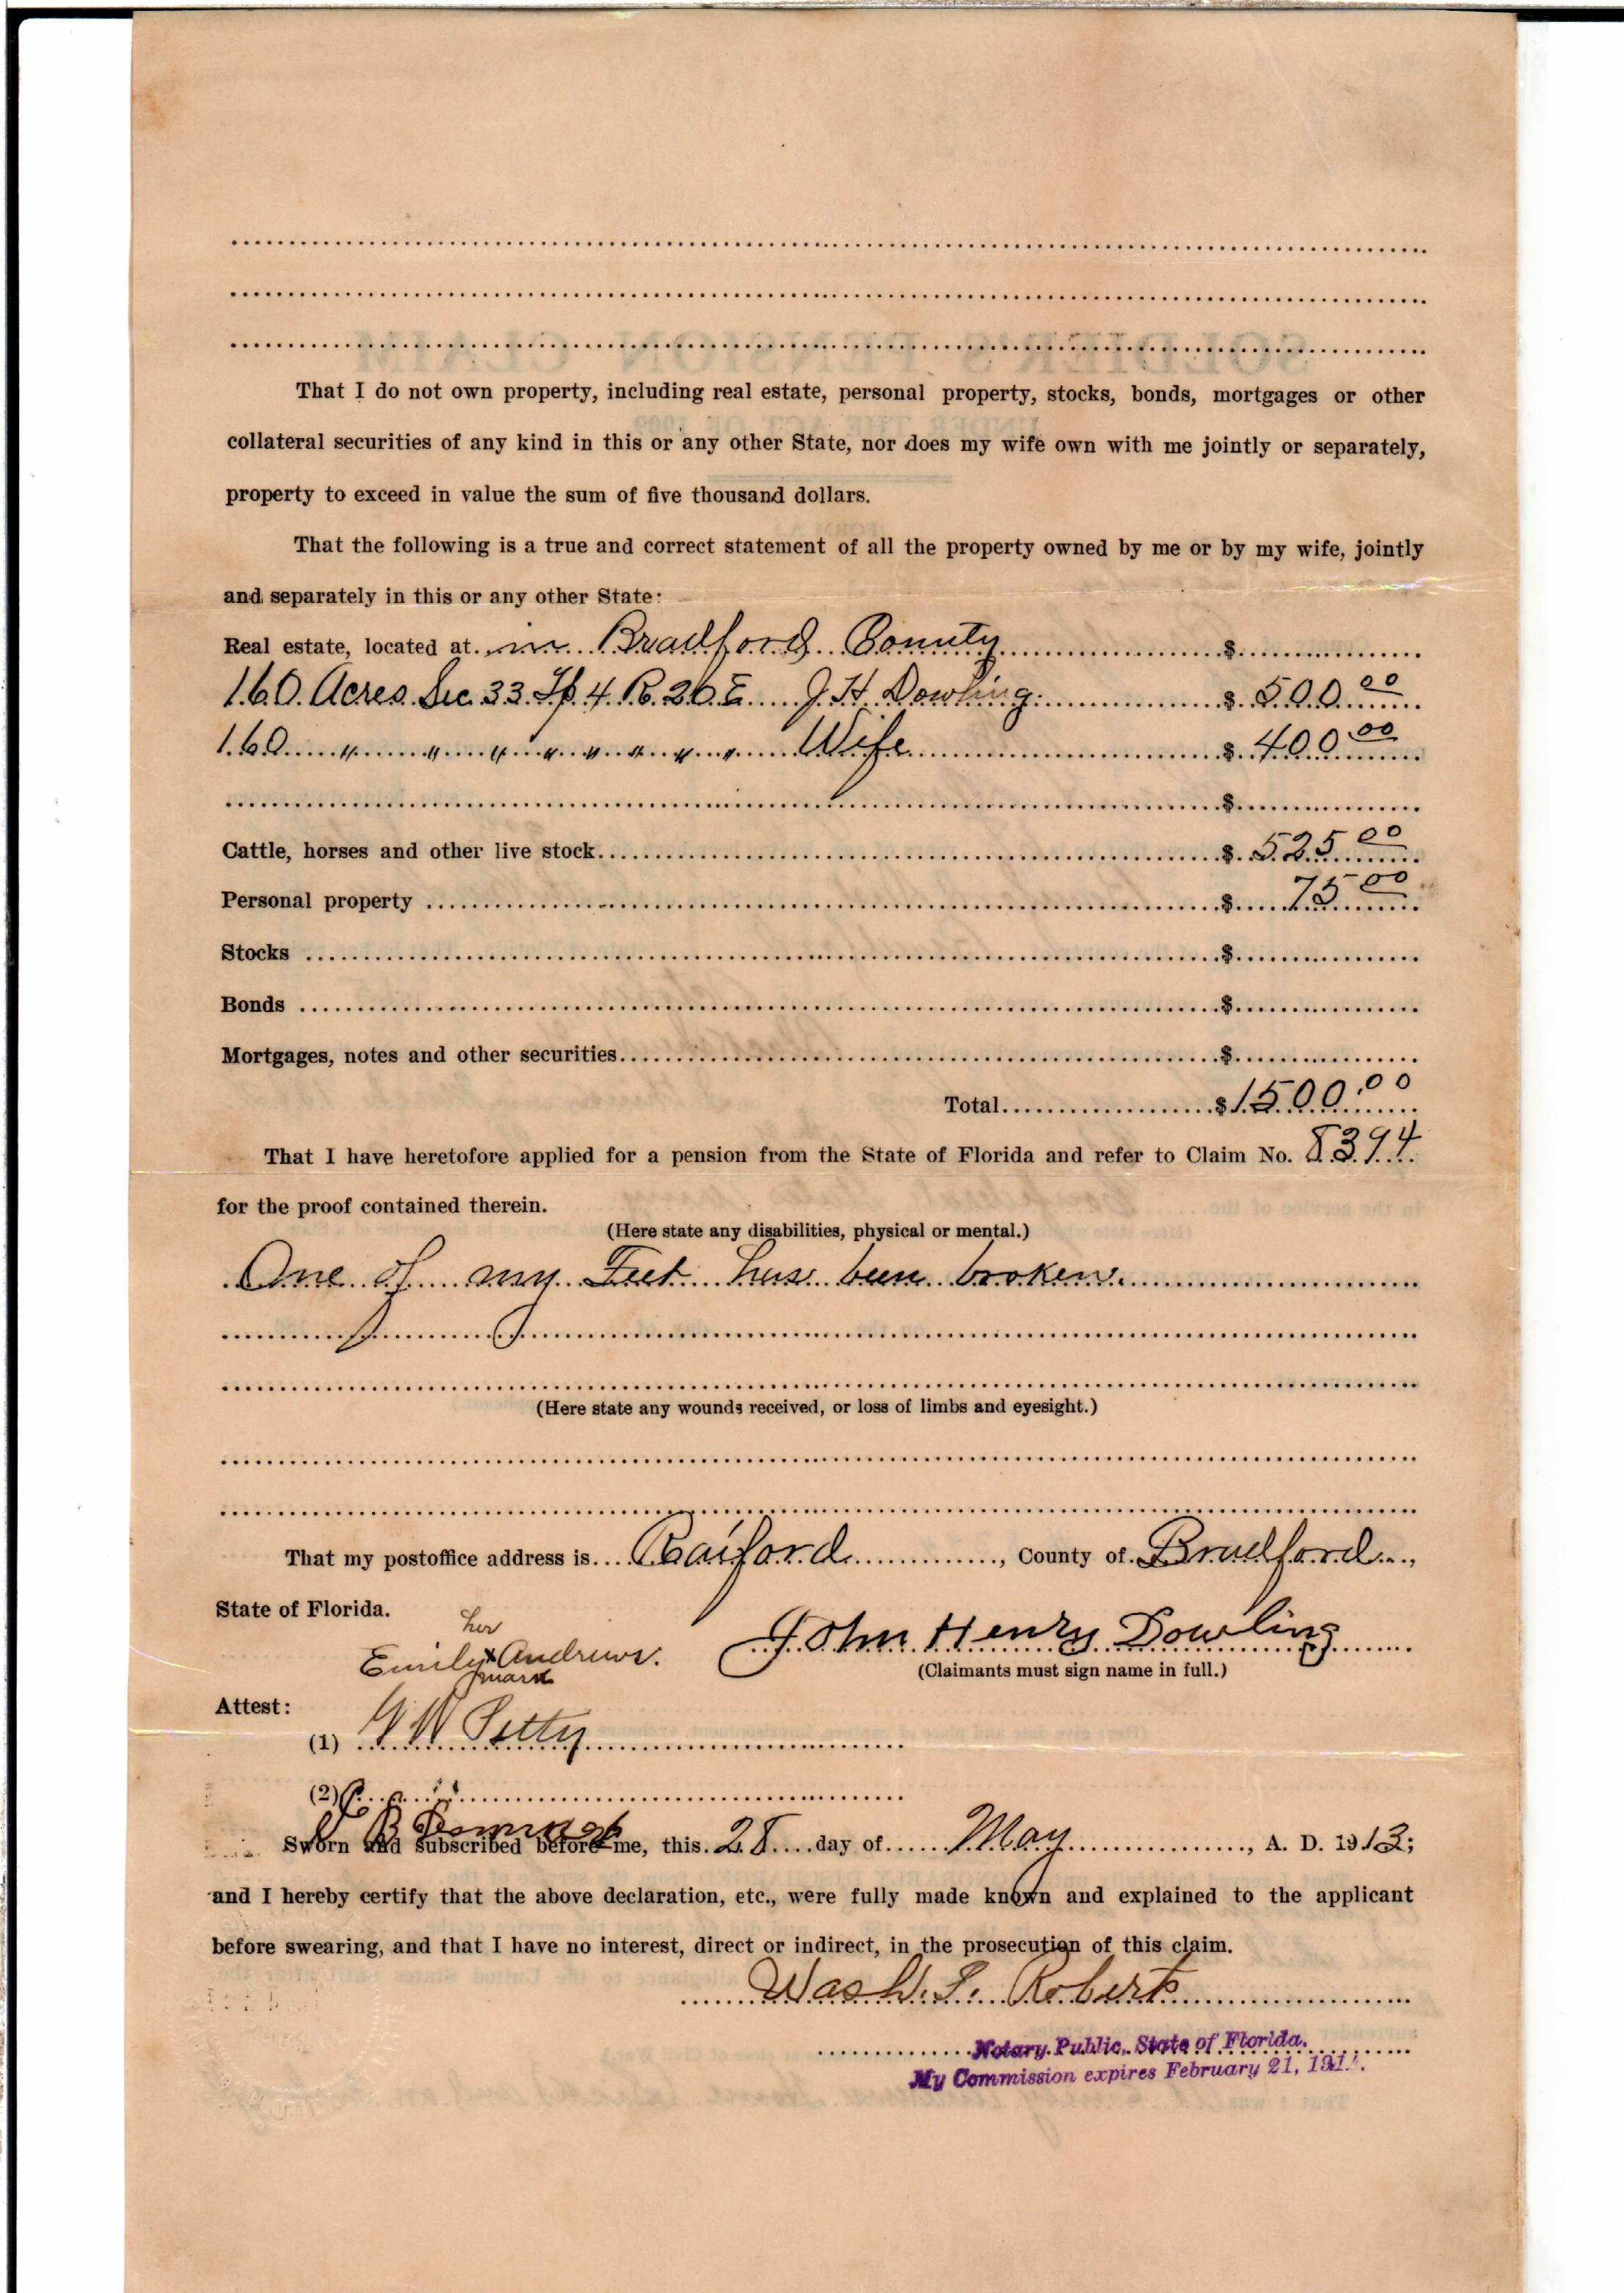 That I do not own property, including real estate, personal property, stocks, bonds, mortgages or other
collateral securities of any kind in this or any other State, nor does my wife own with me jointly or separately,
property to exceed in value the sum of five thousand dollars.
That the following is a true and correct statement of all the property owned by me or by my wife, jointly
and separately in this or any other State:
Real estate, located at in Bradford County $
160 Acres Sec 33 Tp 4 R 20 E J H Dowling $ 500 00
160 " " " " " " " " Wife $ 400 00
$
Cattle, horses and other live stock $ 525 00
Personal property $ 75 00
Stocks $
Bonds $
Mortgages, notes and other securities $
Total $ 1500 00
That I have heretofore applied for a pension from the State of Florida and refer to Claim No. 8394
for the proof contained therein.
(Here state any disabilities, physical or mental.)
One of my Feet has been broken
(Here state any wounds received, or loss of limbs and eyesight.)
That my postoffice address is Raiford, County of Bradford,
State of Florida.
her
Emily x Andrews. John Henry Dowling
mark (Claimants must sign name in full.)
Attest:
(1) G W Petty
(2)
Sworn and subscribed before me, this 28 day of May, A. D. 1913;
and I hereby certify that the above declaration, etc., were fully made known and explained to the applicant
before swearing, and that I have no interest, direct or indirect, in the prosecution of this claim.
Wash. S. Roberts
Notary Public, State of Florida.
My Commission expires February 21, 191